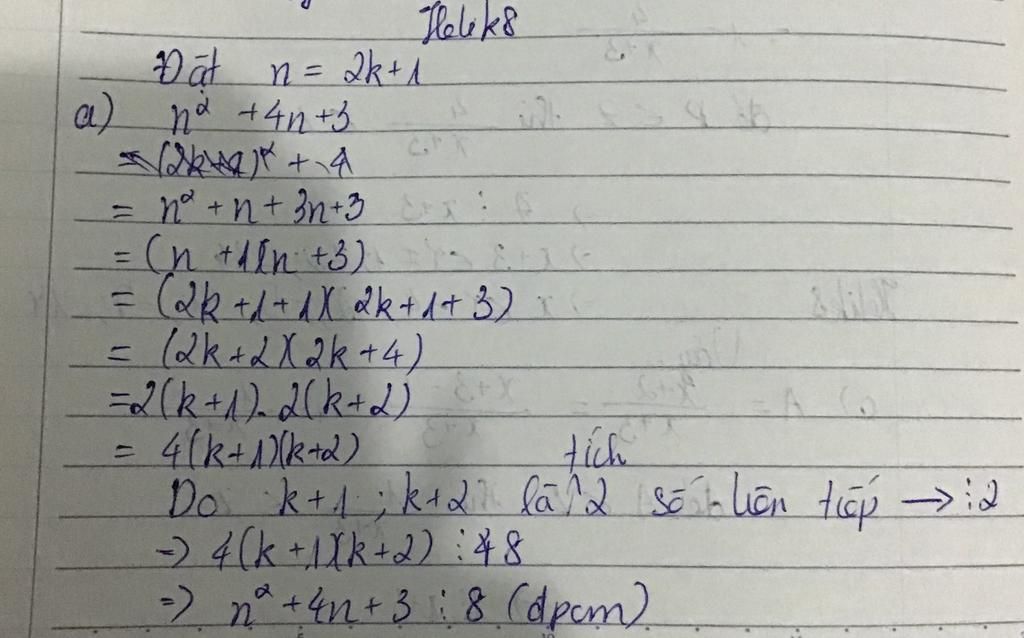 Helik8
Đặt n = 2k+1
a) n² +4n+3
= n² + n + 3n+3
= (n +1)(n +3)
= (2k +1+1)(2k+1+3)
= (2k+2)(2k+4)
=2(k+1).2(k+2)
= 4(k+1)(k+2)
tích
Do k+1 ; k+2 là 2 số liên tiếp → ⋮2
=> 4(k+1)(k+2) ⋮ 8
=> n² +4n+3 ⋮ 8 (đpcm)